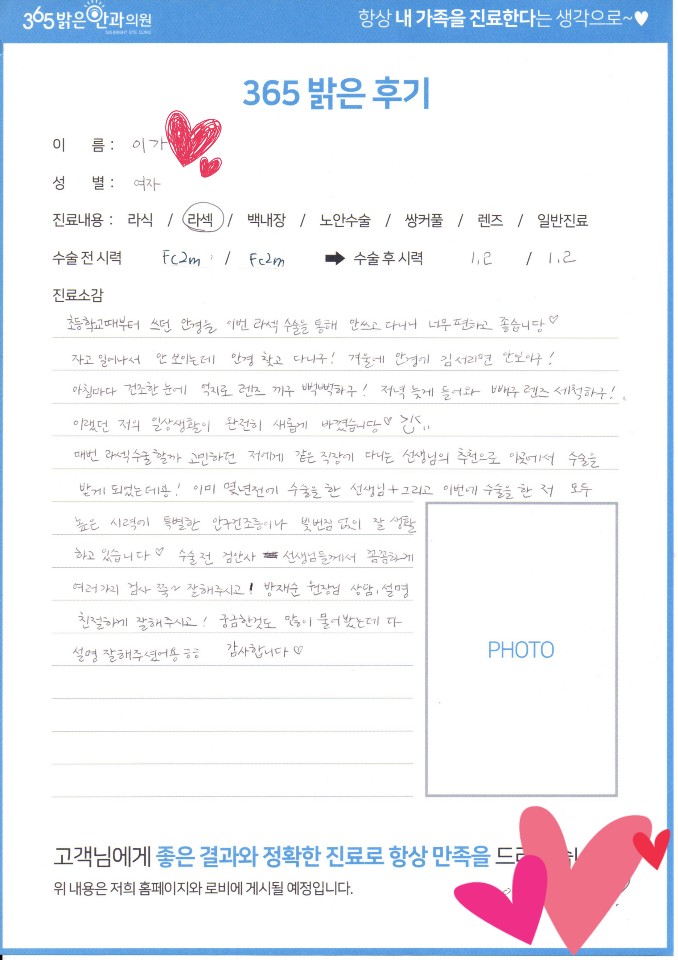 365 밝은안과의원
항상 내 가족을 진료한다는 생각으로~♥
365 밝은 후기
이 름 : 이가
성 별 : 여자
진료내용 : 라식 / 라섹 / 백내장 / 노안수술 / 쌍커풀 / 렌즈 / 일반진료
수술 전 시력 Fc2m / Fc2m ➡ 수술 후 시력 1.2 / 1.2
진료소감
초등학교때부터 쓰던 안경을 이번 라섹 수술을 통해 안쓰고 다니니 너무 편하고 좋습니당♡
자고 일어나서 안 보이는데 안경 찾고 다니구! 겨울에 안경에 김서리면 안보이구!
아침마다 건조한 눈에 억지로 렌즈 끼구 뻑뻑하구! 저녁 늦게 들어와 빼구 렌즈 세척하구!
이랬던 저의 일상생활이 완전히 새롭게 바꼈습니당♡
매번 라섹수술할까 고민하던 저에게 같은 직장에 다니는 선생님의 추천으로 이곳에서 수술을
받게 되었는데용! 이미 몇년전에 수술을 한 선생님+그리고 이번에 수술을 한 저 모두
높은 시력에 특별한 안구건조증이나 빛번짐 없이 잘 생활
하고 있습니다♡ 수술전 검안사 선생님들께서 꼼꼼하게
여러가지 검사 쭉~ 잘해주시고! 방재순 원장님 상담, 설명
친절하게 잘해주시고! 궁금한것도 많이 물어봤는데 다
설명 잘해주셨어용 ㅎㅎ 감사합니다♡
PHOTO
고객님에게 좋은 결과와 정확한 진료로 항상 만족을
위 내용은 저희 홈페이지와 로비에 게시될 예정입니다.